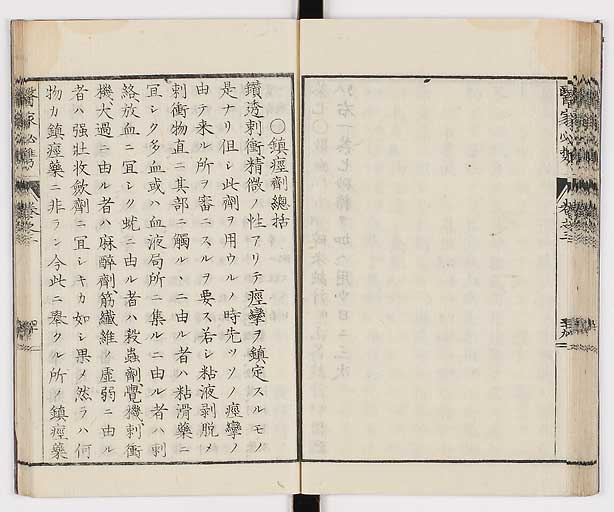 ○鎮痙劑總括
鑽透刺衝精微ノ性アリテ痙攣ヲ鎮定スルモノ
是ナリ但シ此劑ヲ用ウルノ時先ツソノ痙攣ノ
由テ来ル所ヲ審ニスルヲ要ス若シ粘液剥脱〆
刺衝物直ニ其部ニ觸ルヽニ由ル者ハ粘滑藥ニ
宜シク多血或ハ血液局所ニ集ルニ由ル者ハ刺
絡放血ニ宜シク蚘ニ由ル者ハ殺蟲劑覺機刺衝
機亢過ニ由ル者ハ麻醉劑筋纖維ノ虚弱ニ由ル
者ハ强壮收斂劑ニ宜シキカ如シ果〆然ラハ何
物カ鎮痙藥ニ非ラン今此ニ擧クル所ノ鎮痙藥
醫家必携
卷之二